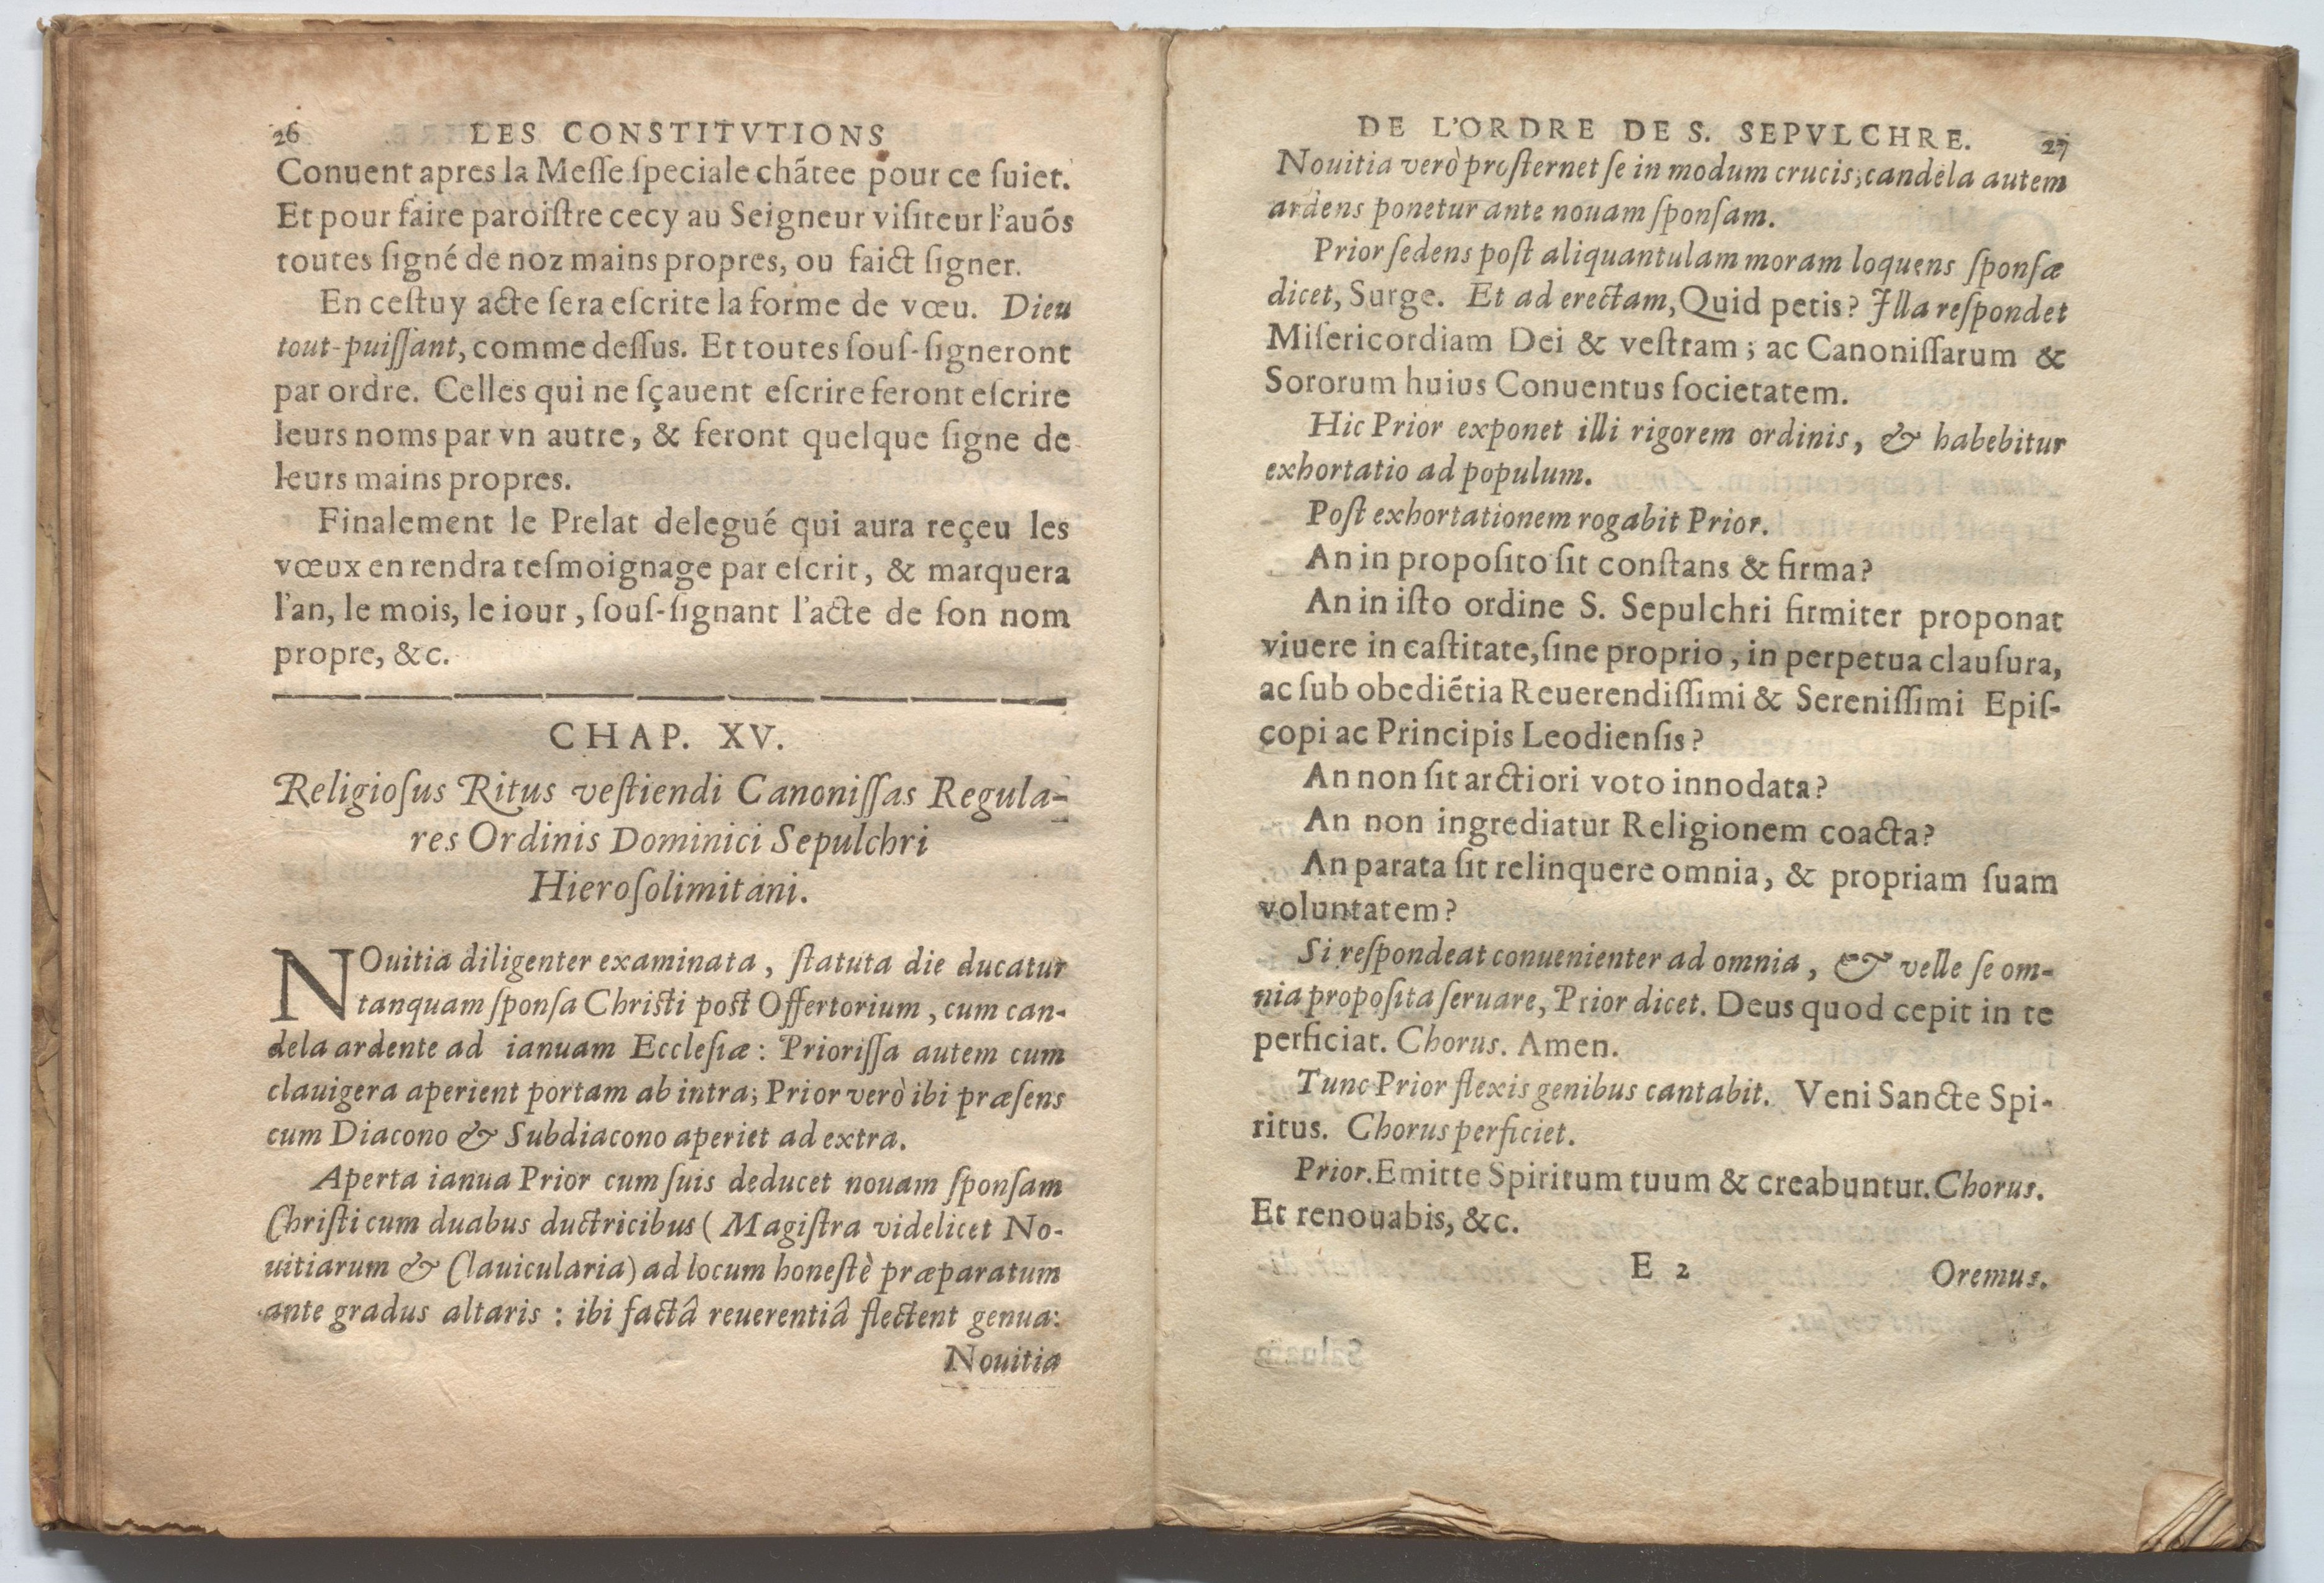 26 LES CONSTITVTIONS
Conuent apres la Meſſe ſpeciale chãtee pour ce ſuiet.
Et pour faire paroiſtre cecy au Seigneur viſiteur l'auõs
toutes ſigné de noz mains propres, ou faict ſigner.
En ceſtuy acte ſera eſcrite la forme de vœu. Dieu
tout-puiſſant, comme deſſus. Et toutes ſouſ-ſigneront
par ordre. Celles qui ne ſçauent eſcrire feront eſcrire
leurs noms par vn autre, & feront quelque ſigne de
leurs mains propres.
Finalement le Prelat delegué qui aura reçeu les
vœux en rendra teſmoignage par eſcrit, & marquera
l'an, le mois, le iour, ſouſ-ſignant l'acte de ſon nom
propre, &c.
CHAP. XV.
Religioſus Ritus veſtiendi Canoniſſas Regula-
res Ordinis Dominici Sepulchri
Hieroſolimitani.
NOuitia diligenter examinata, ſtatuta die ducatur
tanquam ſponſa Chriſti poſt Offertorium, cum can-
dela ardente ad ianuam Eccleſiæ: Prioriſſa autem cum
clauigera aperient portam ab intra; Prior verò ibi præſens
cum Diacono & Subdiacono aperiet ad extra.
Aperta ianua Prior cum ſuis deducet nouam ſponſam
Chriſti cum duabus ductricibus (Magiſtra videlicet No-
uitiarum & Clauicularia) ad locum honeſtè præparatum
ante gradus altaris: ibi factâ reuerentiâ flectent genua:
Nouitia
DE L'ORDRE DE S. SEPVLCHRE. 27
Nouitia verò proſternet ſe in modum crucis; candela autem
ardens ponetur ante nouam ſponſam.
Prior ſedens poſt aliquantulam moram loquens ſponſæ
dicet, Surge. Et ad erectam, Quid petis? Illa reſpondet
Miſericordiam Dei & veſtram; ac Canoniſſarum &
Sororum huius Conuentus ſocietatem.
Hic Prior exponet illi rigorem ordinis, & habebitur
exhortatio ad populum.
Poſt exhortationem rogabit Prior.
An in propoſito ſit conſtans & firma?
An in iſto ordine S. Sepulchri firmiter proponat
viuere in caſtitate, ſine proprio, in perpetua clauſura,
ac ſub obediẽtia Reuerendiſſimi & Sereniſſimi Epiſ-
copi ac Principis Leodienſis?
An non ſit arctiori voto innodata?
An non ingrediatur Religionem coacta?
An parata ſit relinquere omnia, & propriam ſuam
voluntatem?
Si reſpondeat conuenienter ad omnia, & velle ſe om-
nia propoſita ſeruare, Prior dicet. Deus quod cepit in te
perficiat. Chorus. Amen.
Tunc Prior flexis genibus cantabit. Veni Sancte Spi-
ritus. Chorus perficiet.
Prior. Emitte Spiritum tuum & creabuntur. Chorus.
Et renouabis, &c.
E 2 Oremus.